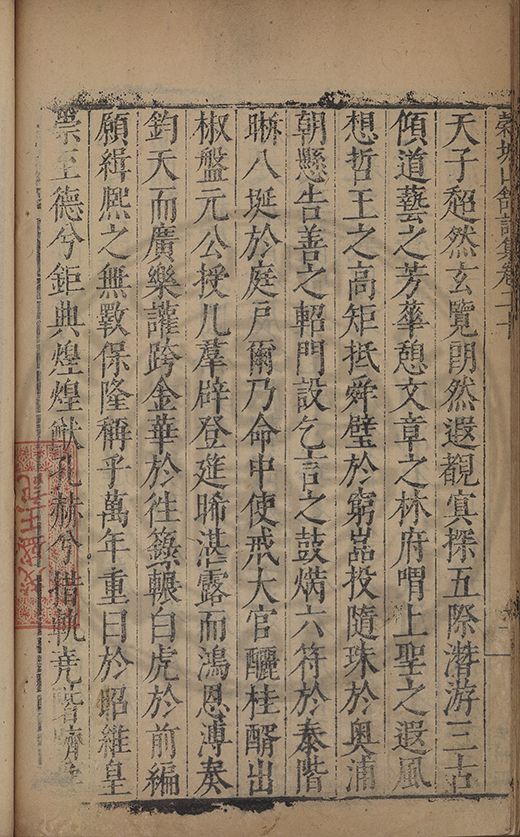 天子超然玄覽朗然遐覩寘探五際潛游三古
傾道藝之芳華憩文章之林府喟上聖之遐風
想哲王之高矩抵舜璧於窮嵓投隨珠於奧浦
朝懸告善之軺門設乞言之鼓炳六符於泰階
晣八埏於庭戸爾乃命中使戒大官釃桂醑出
椒盤元公授几羣辟登筵晞湛露而鴻恩溥奏
鈞天而廣樂讙跨金華於徃籙轢白虎於前編
願緝熙之無斁保隆稱乎萬年重曰於昭維皇
崇至德兮鉅典煌煌猷孔赫兮揩軌堯